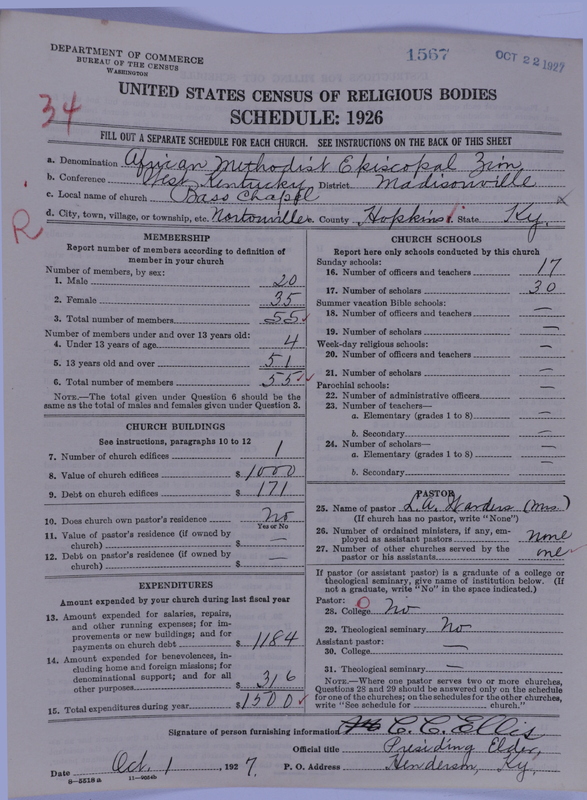 DEPARTMENT OF COMMERCE
BUREAU OF THE CENSUS
WASHINGTON
1567
OCT 22 1927
34
UNITED STATES CENSUS OF RELIGIOUS BODIES
SCHEDULE: 1926
FILL OUT A SEPARATE SCHEDULE FOR EACH CHURCH. SEE INSTRUCTIONS ON THE BACK OF THIS SHEET
a. Denomination African Methodist Episcopal Zion
b. Conference West Kentucky District Madisonville
c. Local name of church Bass Chapel
d. City, town, village, or township, etc. Nortonville e. County Hopkins f. State Ky.
R
MEMBERSHIP
Report number of members according to definition of
member in your church
Number of members, by sex:
1. Male 20
2. Female 35
3. Total number of members 55
Number of members under and over 13 years old:
4. Under 13 years of age 4
5. 13 years old and over 51
6. Total number of members 55
NOTE.—The total given under Question 6 should be the
same as the total of males and females given under Question 3.
CHURCH BUILDINGS
See instructions, paragraphs 10 to 12
7. Number of church edifices 1
8. Value of church edifices $ 1000
9. Debt on church edifices $ 171
10. Does church own pastor's residence No
Yes or No
11. Value of pastor's residence (if owned by
church) $ —
12. Debt on pastor's residence (if owned by
church) $ —
EXPENDITURES
Amount expended by your church during last fiscal year
13. Amount expended for salaries, repairs,
and other running expenses; for im-
provements or new buildings; and for
payments on church debt $ 1184
14. Amount expended for benevolences, in-
cluding home and foreign missions; for
denominational support; and for all
other purposes $ 316
15. Total expenditures during year $ 1500
CHURCH SCHOOLS
Report here only schools conducted by this church
Sunday schools:
16. Number of officers and teachers 17
17. Number of scholars 30
Summer vacation Bible schools:
18. Number of officers and teachers —
19. Number of scholars —
Week-day religious schools:
20. Number of officers and teachers —
21. Number of scholars —
Parochial schools:
22. Number of administrative officers —
23. Number of teachers—
a. Elementary (grades 1 to 8) —
b. Secondary —
24. Number of scholars—
a. Elementary (grades 1 to 8) —
b. Secondary —
PASTOR
25. Name of pastor L.A. (Mrs)
(If church has no pastor, write "None")
26. Number of ordained ministers, if any, em-
ployed as assistant pastors None
27. Number of other churches served by the
pastor or his assistants one
If pastor (or assistant pastor) is a graduate of a college or
theological seminary, give name of institution below. (If
not a graduate, write "No" in the space indicated.)
Pastor: 0
28. College No
29. Theological seminary No
Assistant pastor:
30. College —
31. Theological seminary —
NOTE.—Where one pastor serves two or more churches,
Questions 28 and 29 should be answered only on the schedule
for one of the churches; on the schedules for the other churches,
write "See schedule for ______ church."
Signature of person furnishing information C. C. Ellis
Official title Presiding Elder,
Date Oct. 1, 1927. P. O. Address Henderson, Ky.
8—5518 a 11—9064b